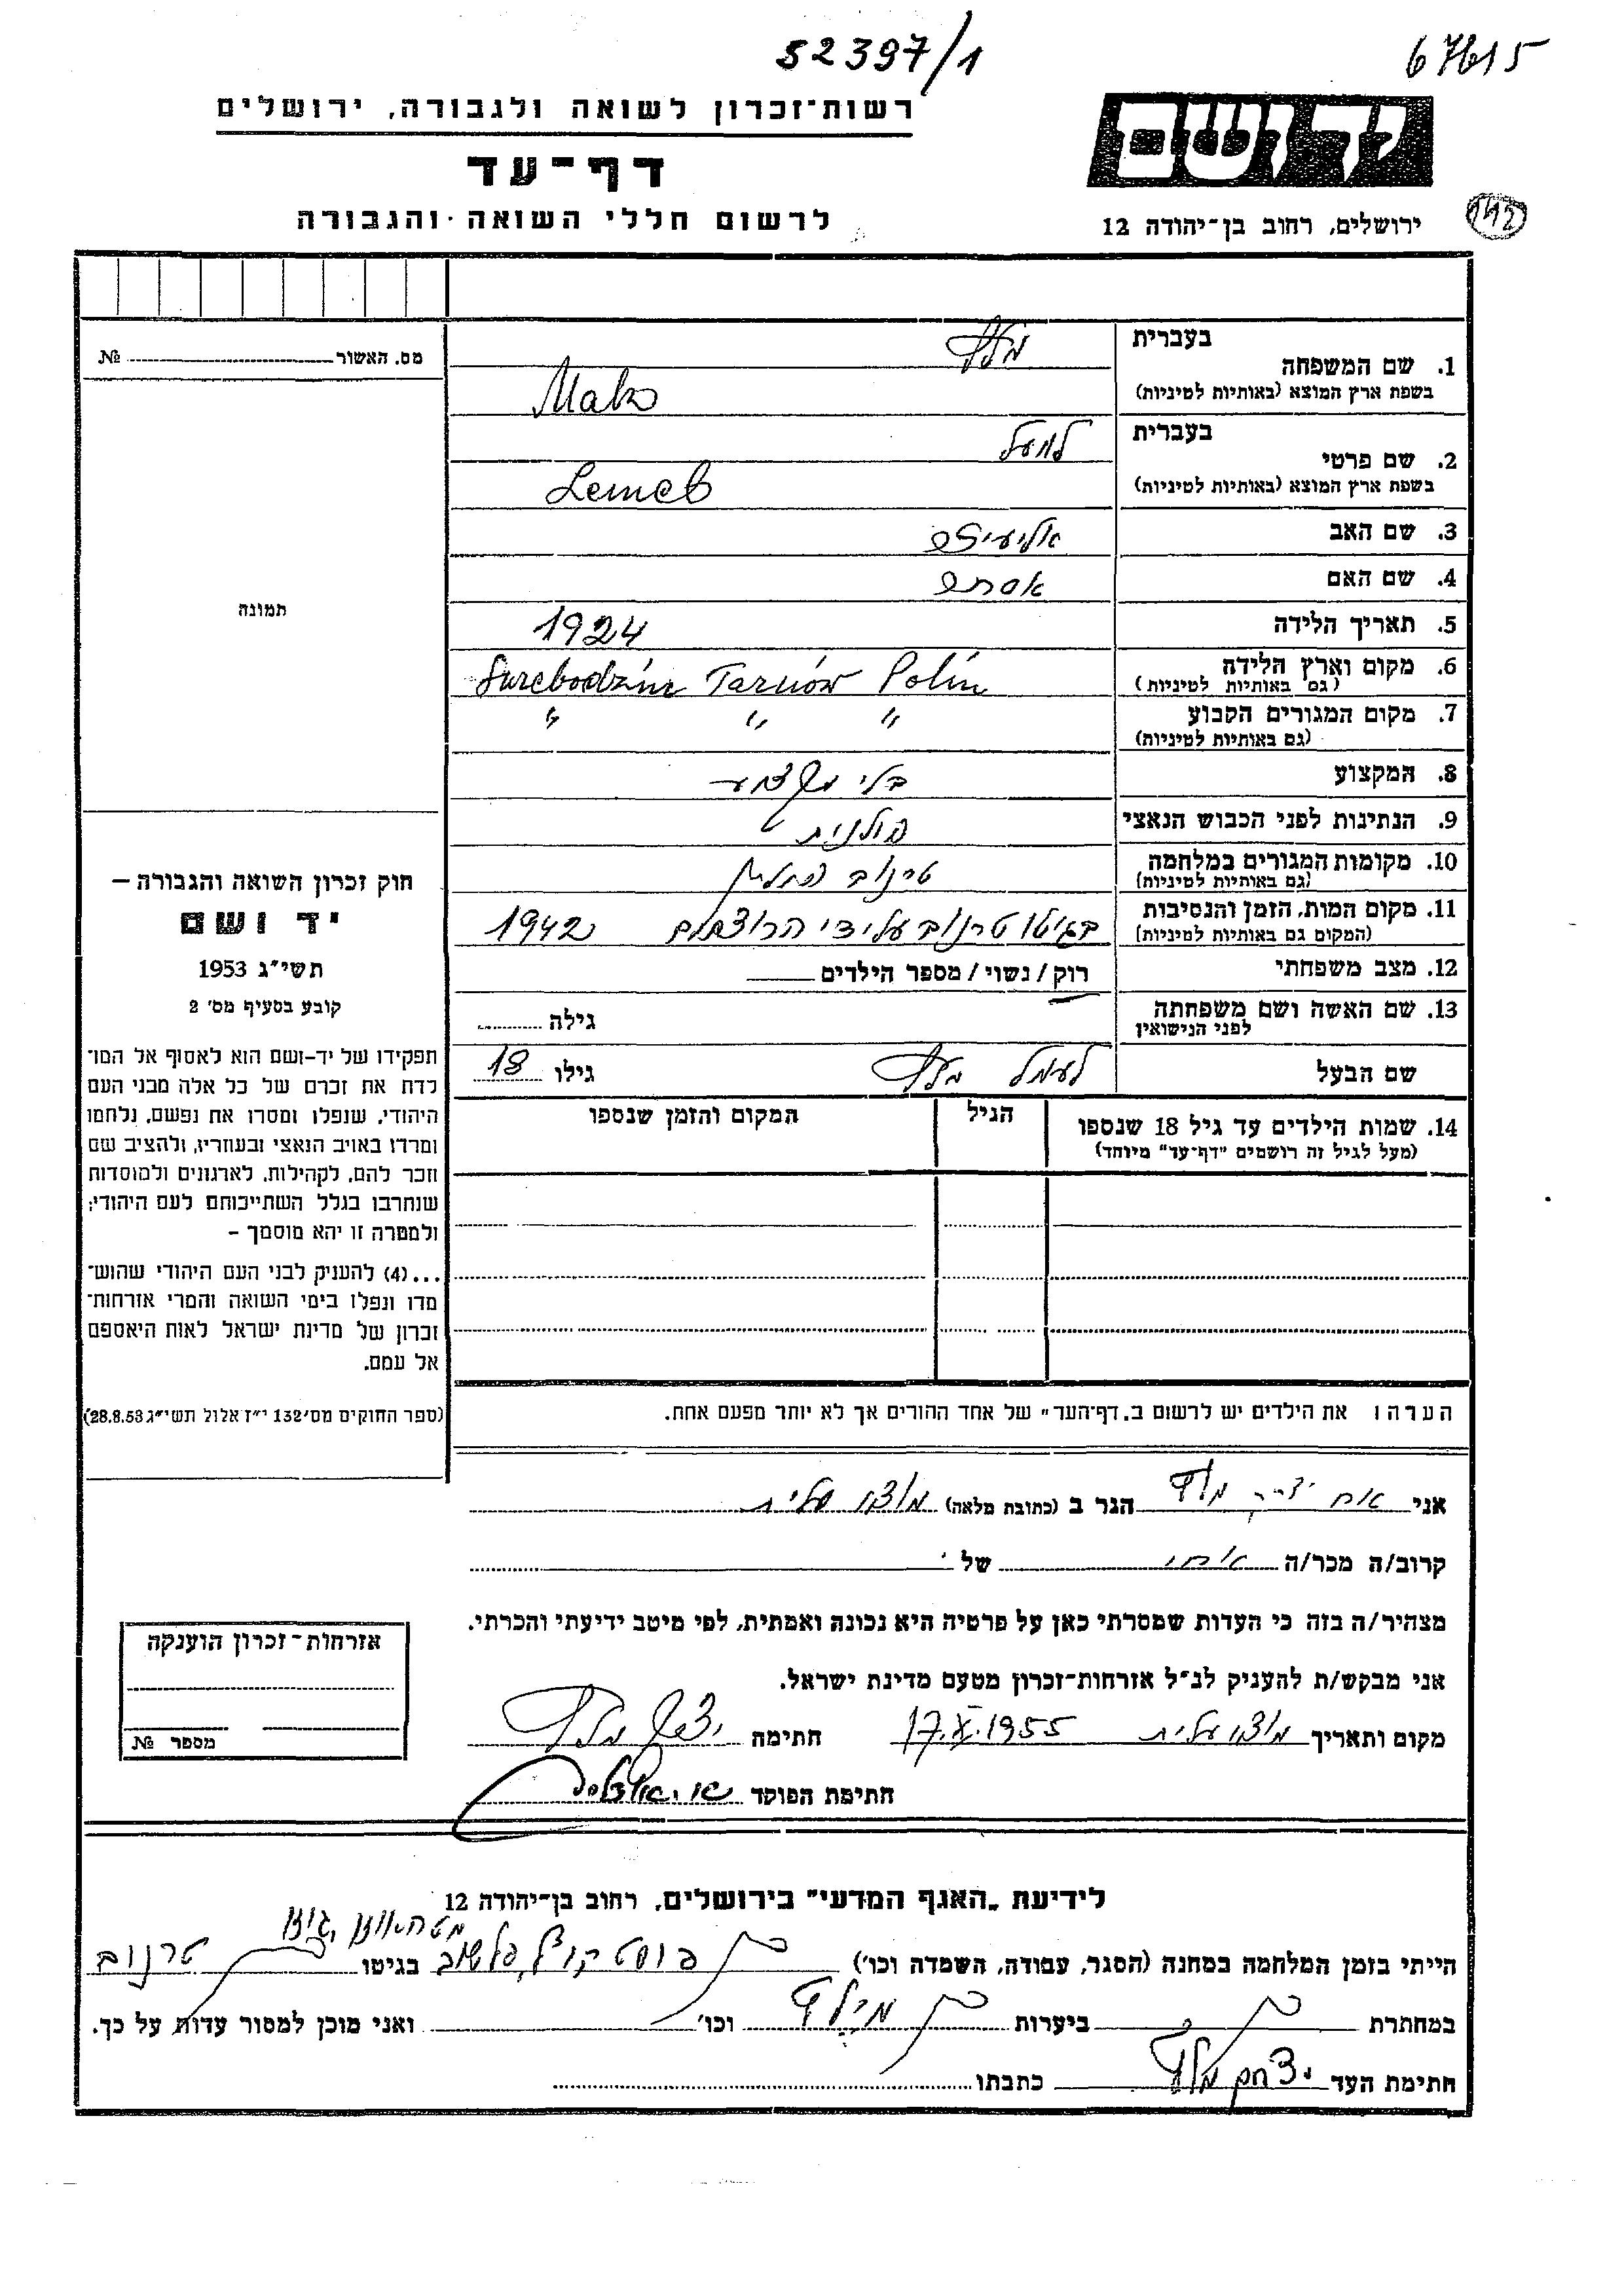 52397/1
67615
רשות־זכרון לשואה ולגבורה, ירושלים
יד ושם
דף־עד
לרשום חללי השואה והגבורה
ירושלים, רחוב בן־יהודה 12
142
מס. האשור № 
בעברית
1. שם המשפחה
בשפת ארץ המוצא (באותיות לטיניות) Mako
בעברית למעל
2. שם פרטי
בשפת ארץ המוצא (באותיות לטיניות) Lemel
3. שם האב
4. שם האם אסתר
תמונה
5. תאריך הלידה 1924
6. מקום וארץ הלידה Tarnów Polin
(גם באותיות לטיניות)
7. מקום המגורים הקבוע " " "
(גם באותיות לטיניות)
8. המקצוע בלי מקצוע
9. הנתינות לפני הכבוש הנאצי פולנית
10. מקומות המגורים במלחמה טרנוב
(גם באותיות לטיניות)
11. מקום המות, הזמן והנסיבות בגיטו טרנוב על ידי 1942
(המקום גם באותיות לטיניות)
12. מצב משפחתי רוק / נשוי / מספר הילדים
13. שם האשה ושם משפחתה גילה
לפני הנישואין
שם הבעל גילו 18
14. שמות הילדים עד גיל 18 שנספו הגיל המקום והזמן שנספו
(מעל לגיל זה רושמים "דף־עד" מיוחד)
חוק זכרון השואה והגבורה —
יד ושם
תשי"ג 1953
קובע בסעיף מס' 2
תפקידו של יד-ושם הוא לאסוף אל המו־
לדת את זכרם של כל אלה מבני העם
היהודי, שנפלו ומסרו את נפשם, נלחמו
ומרדו באויב הנאצי ובעוזריו, ולהציב שם
וזכר להם, לקהילות, לארגונים ולמוסדות
שנחרבו בגלל השתייכותם לעם היהודי;
ולמטרה זו יהא מוסמך –
...(4) להעניק לבני העם היהודי שהוש־
מדו ונפלו בימי השואה והמרי אזרחות־
זכרון של מדינת ישראל לאות היאספם
אל עמם.
(ספר החוקים מס' 132 י"ז אלול תשי"ג 28.8.53)
הערה: את הילדים יש לרשום ב„דף־העד" של אחד ההורים אך לא יותר מפעם אחת.
אני הגר ב (כתובת מלאה)
קרוב/ה מכר/ה אחי של
מצהיר/ה בזה כי העדות שמסרתי כאן על פרטיה היא נכונה ואמתית, לפי מיטב ידיעתי והכרתי.
אני מבקש/ת להעניק לנ"ל אזרחות־זכרון מטעם מדינת ישראל.
מקום ותאריך 17.X.1955 חתימה
חתימת הפוקד
אזרחות־זכרון הוענקה
מספר №
לידיעת „האגף המדעי" בירושלים, רחוב בן־יהודה 12
הייתי בזמן המלחמה במחנה (הסגר, עבודה, השמדה וכו') בגיטו טרנוב
במחתרת ביערות וכו' ואני מוכן למסור עדות על כך.
חתימת העד כתבתו